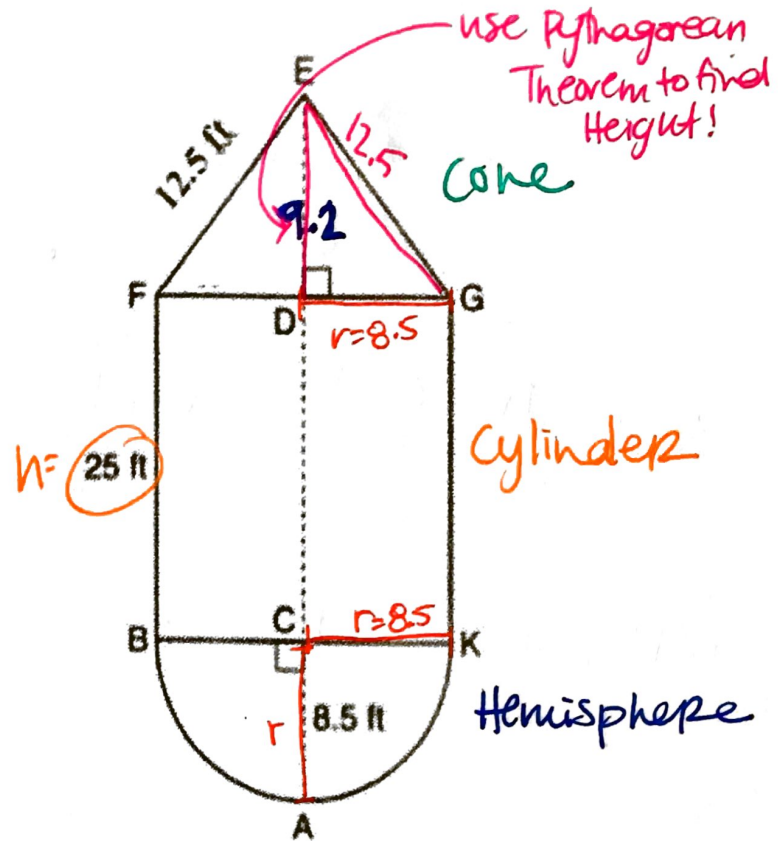 use Pythagorean
Theorem to find
Height!
E
12.5 ft
12.5
Cone
9.2
F
D
G
r=8.5
h= 25 ft
Cylinder
B
C
r=8.5
K
r
8.5 ft
Hemisphere
A